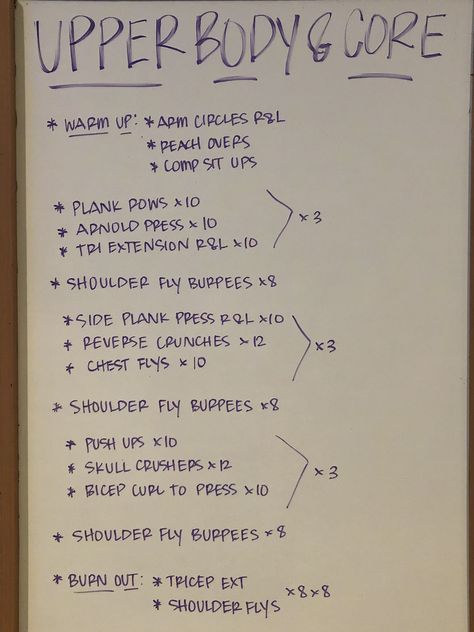 UPPER BODY & CORE
* WARM UP: * ARM CIRCLES R&L
* REACH OVERS
* COMP SIT UPS
* PLANK ROWS x10
* ARNOLD PRESS x10
* TRI EXTENSION R&L x10
x3
* SHOULDER FLY BURPEES x8
* SIDE PLANK PRESS R&L x10
* REVERSE CRUNCHES x12
* CHEST FLYS x10
x3
* SHOULDER FLY BURPEES x8
* PUSH UPS x10
* SKULL CRUSHERS x12
* BICEP CURL TO PRESS x10
x3
* SHOULDER FLY BURPEES x8
* BURN OUT: * TRICEP EXT
* SHOULDER FLYS
x8x8